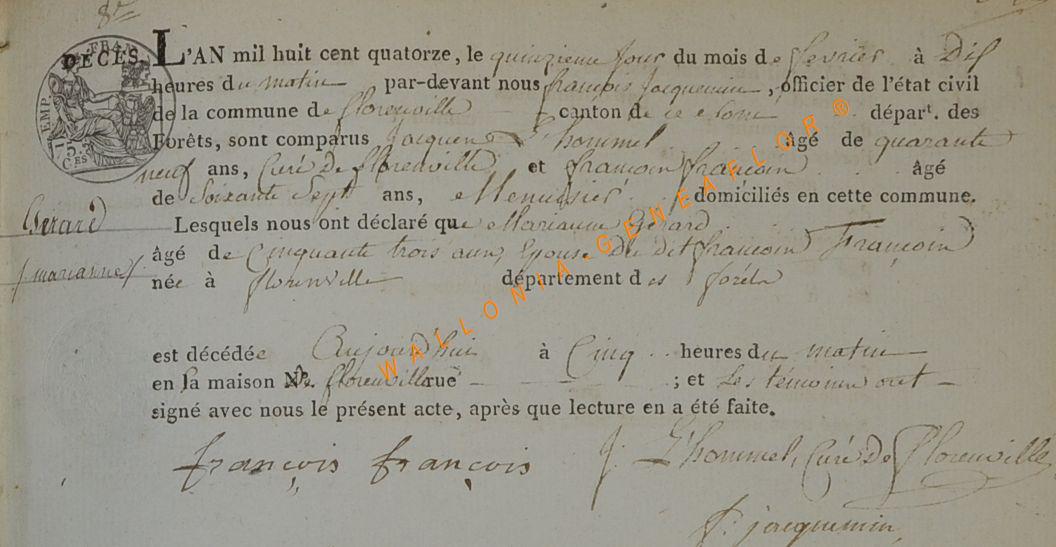 8e
DÉCÈS.
L'AN mil huit cent quatorze, le quinzieme jour du mois de fevrier à Dix
heures du matin par-devant nous françois Jacquemin, officier de l'état civil
de la commune de florenville canton de ce nom départ. des
Forêts, sont comparus Jacques L'hommel âgé de quarante
neuf ans, Curé De florenville et françois françois âgé
de Soixante Sept ans, Menuisier domiciliés en cette commune.
Gerard
(marianne)
Lesquels nous ont déclaré que Marianne Gerard
âgé de Cinquante trois ans, Epouse Du dit françois François
née à florenville département des forêts
est décédée Aujourd'hui à Cinq heures du matin
en sa maison No. florenville rue ; et Les témoins ont
signé avec nous le présent acte, après que lecture en a été faite.
françois françois
J. L'hommel, Curé De Florenville
f. jacquemin
WALLONIA-GENEAFLOR®